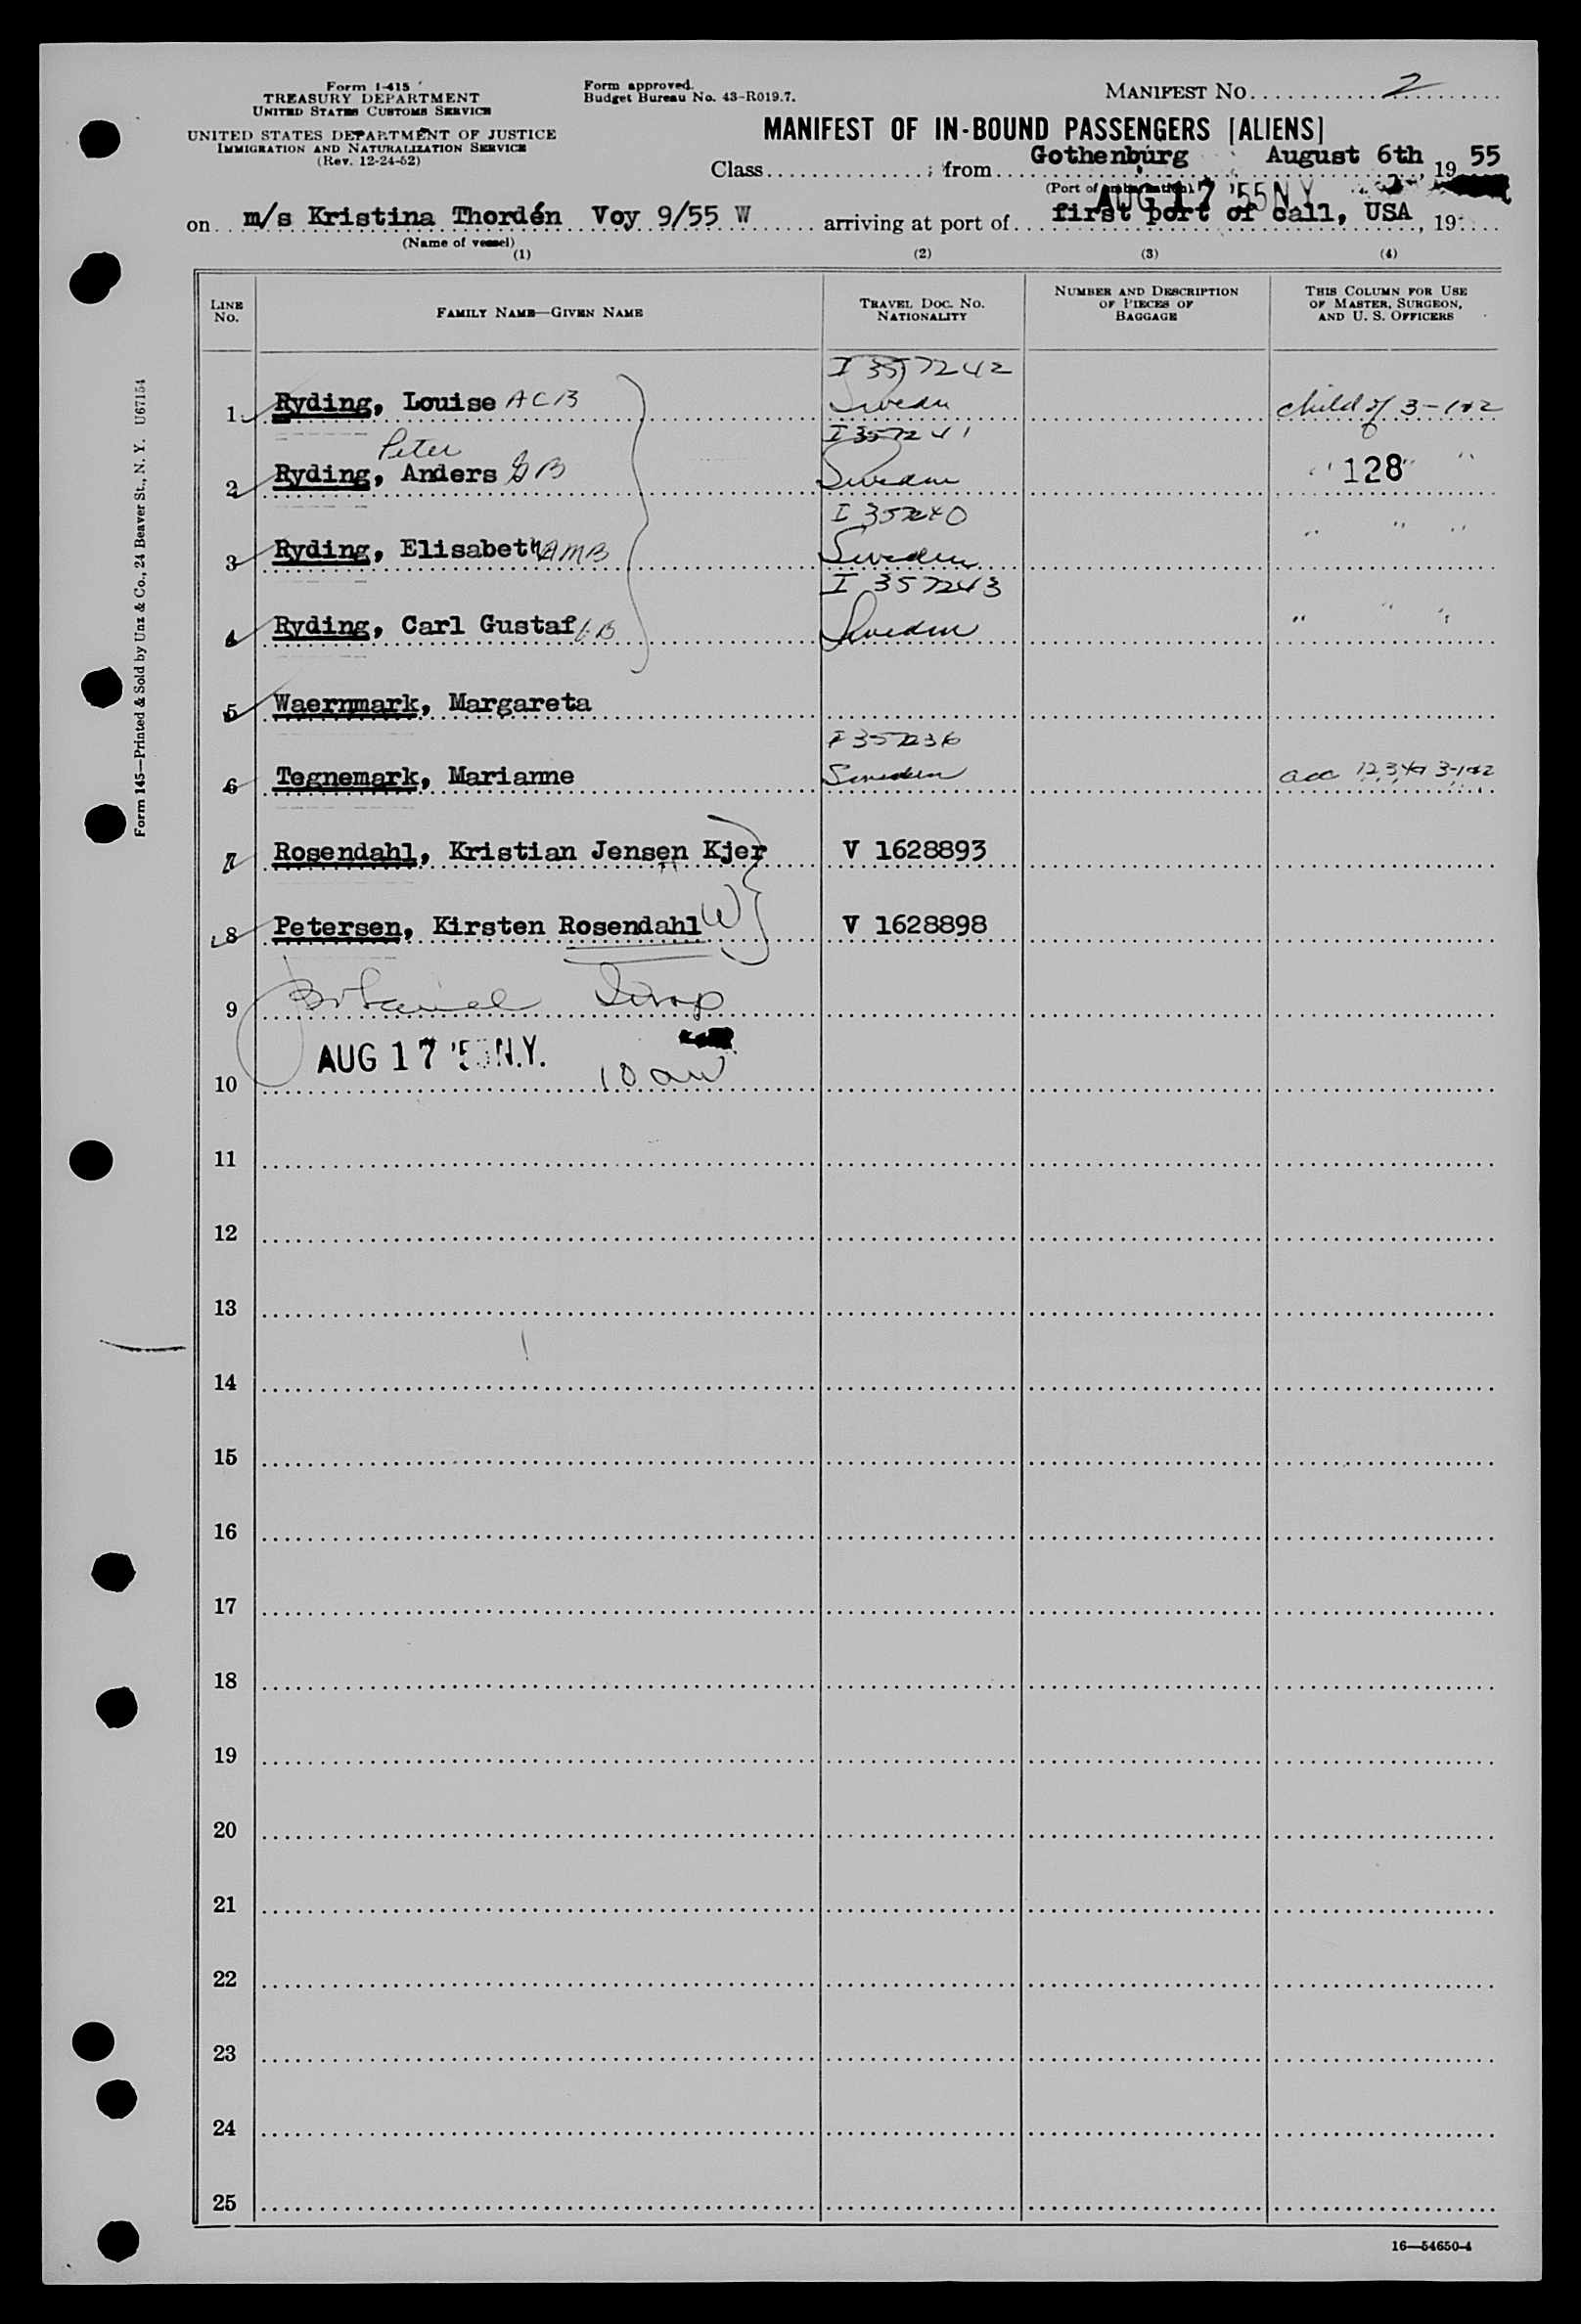 Form I-415
TREASURY DEPARTMENT
UNITED STATES CUSTOMS SERVICE
UNITED STATES DEPARTMENT OF JUSTICE
IMMIGRATION AND NATURALIZATION SERVICE
(Rev. 12-24-52)
Form approved.
Budget Bureau No. 43-R019.7.
MANIFEST NO. 2
MANIFEST OF IN-BOUND PASSENGERS [ALIENS]
Class ; from Gothenburg August 6th, 1955
(Port of embarkation)
AUG 17 '55 N.Y.
on m/s Kristina Thordén Voy 9/55 W arriving at port of first port of call, USA, 19
(Name of vessel)
(1) (2) (3) (4)
LINE NO.
FAMILY NAME—GIVEN NAME
TRAVEL DOC. NO. NATIONALITY
NUMBER AND DESCRIPTION OF PIECES OF BAGGAGE
THIS COLUMN FOR USE OF MASTER, SURGEON, AND U. S. OFFICERS
I 357242
1 Ryding, Louise ACB Sweden child of 3-1+2
Peter I 357241
2 Ryding, Anders GB Sweden " 128 "
I 357240
3 Ryding, Elisabeth AMB Sweden " " "
I 357243
4 Ryding, Carl Gustaf Sweden " " "
5 Waernmark, Margareta
357236
6 Tegnemark, Marianne Sweden acc 1234 3-1+2
7 Rosendahl, Kristian Jensen Kjer V 1628893
8 Petersen, Kirsten Rosendahl W V 1628898
9
AUG 17 '55 N.Y.
10
11
12
13
14
15
16
17
18
19
20
21
22
23
24
25
16—54650-4
Form 145—Printed & Sold by Unz & Co., 24 Beaver St., N. Y. U67154